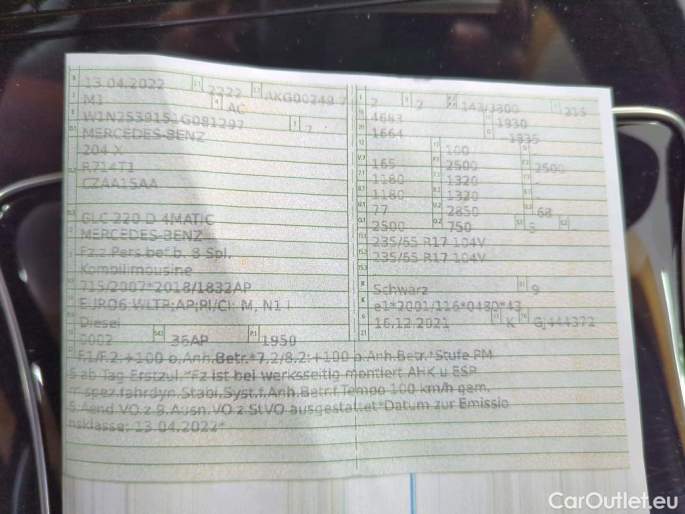 13.04.2022 2222 AKG00249 7
M1 AC
W1N2539151G081297 7
MERCEDES-BENZ
204 X
R714T1
CZAA15AA
GLC 220 D 4MATIC
MERCEDES-BENZ
Fz.z.Pers.bef.b. 8 Spl.
Kombilimousine
715/2007*2018/1832AP
EURO6 WLTP;AP;PI/CI; M, N1 I
Diesel
0002 36AP 1950
2 2 143/3800 215
4683 1930
1664 1835
100
165 2500 2500
1180 1320 -
1180 1320 -
77 2850 68
2500 750 5 -
235/65 R17 104V
235/65 R17 104V
Schwarz 9
e1*2001/116*0480*43
16.12.2021 K GJ444372
F.1/F.2:+100 b.Anh.Betr.*7.2/8.2:+100 b.Anh.Betr.*Stufe PM
5 ab Tag Erstzul.*Fz ist bei werksseitig montiert AHK u ESP
m spez.fahrdyn.Stabi.Syst.f.Anh.Betr.f.Tempo 100 km/h gem.
VO z StVO ausgestattet*Datum zur Emissio
nsklasse: 13.04.2022*
CarOutlet.eu